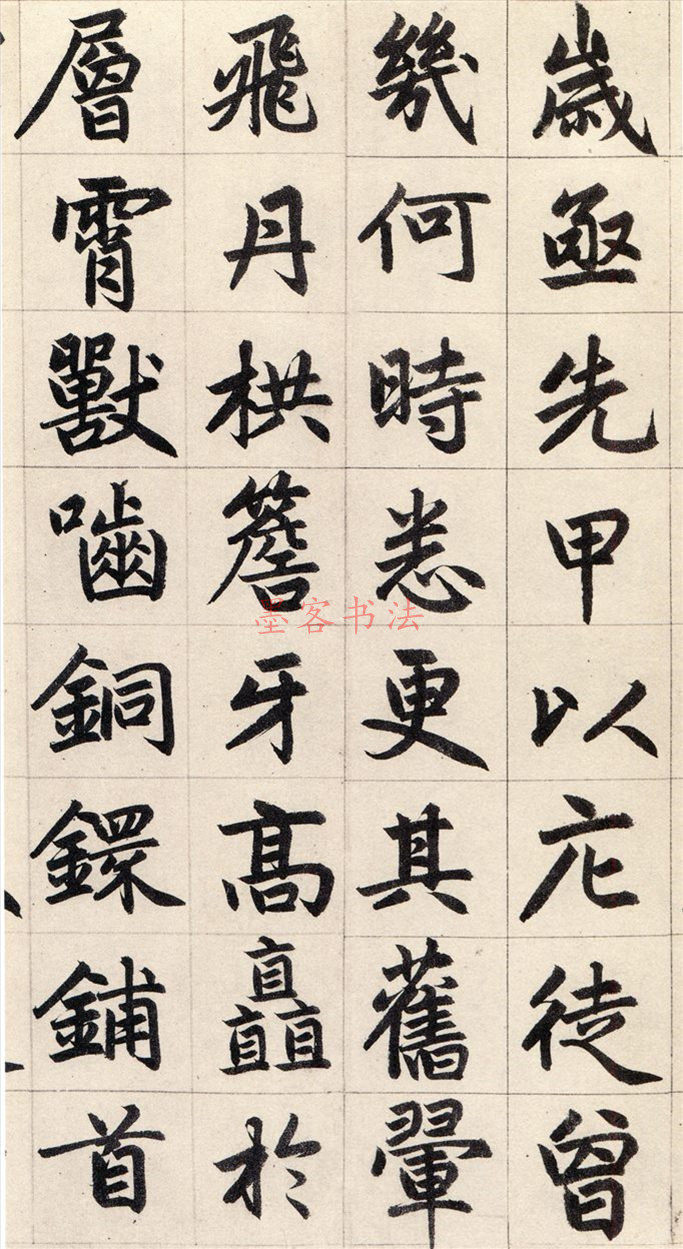 歲亟先甲以庀徒曾
幾何時悉更其舊翬
飛丹栱簷牙高矗於
層霄獸嚙銅鐶鋪首
墨客书法